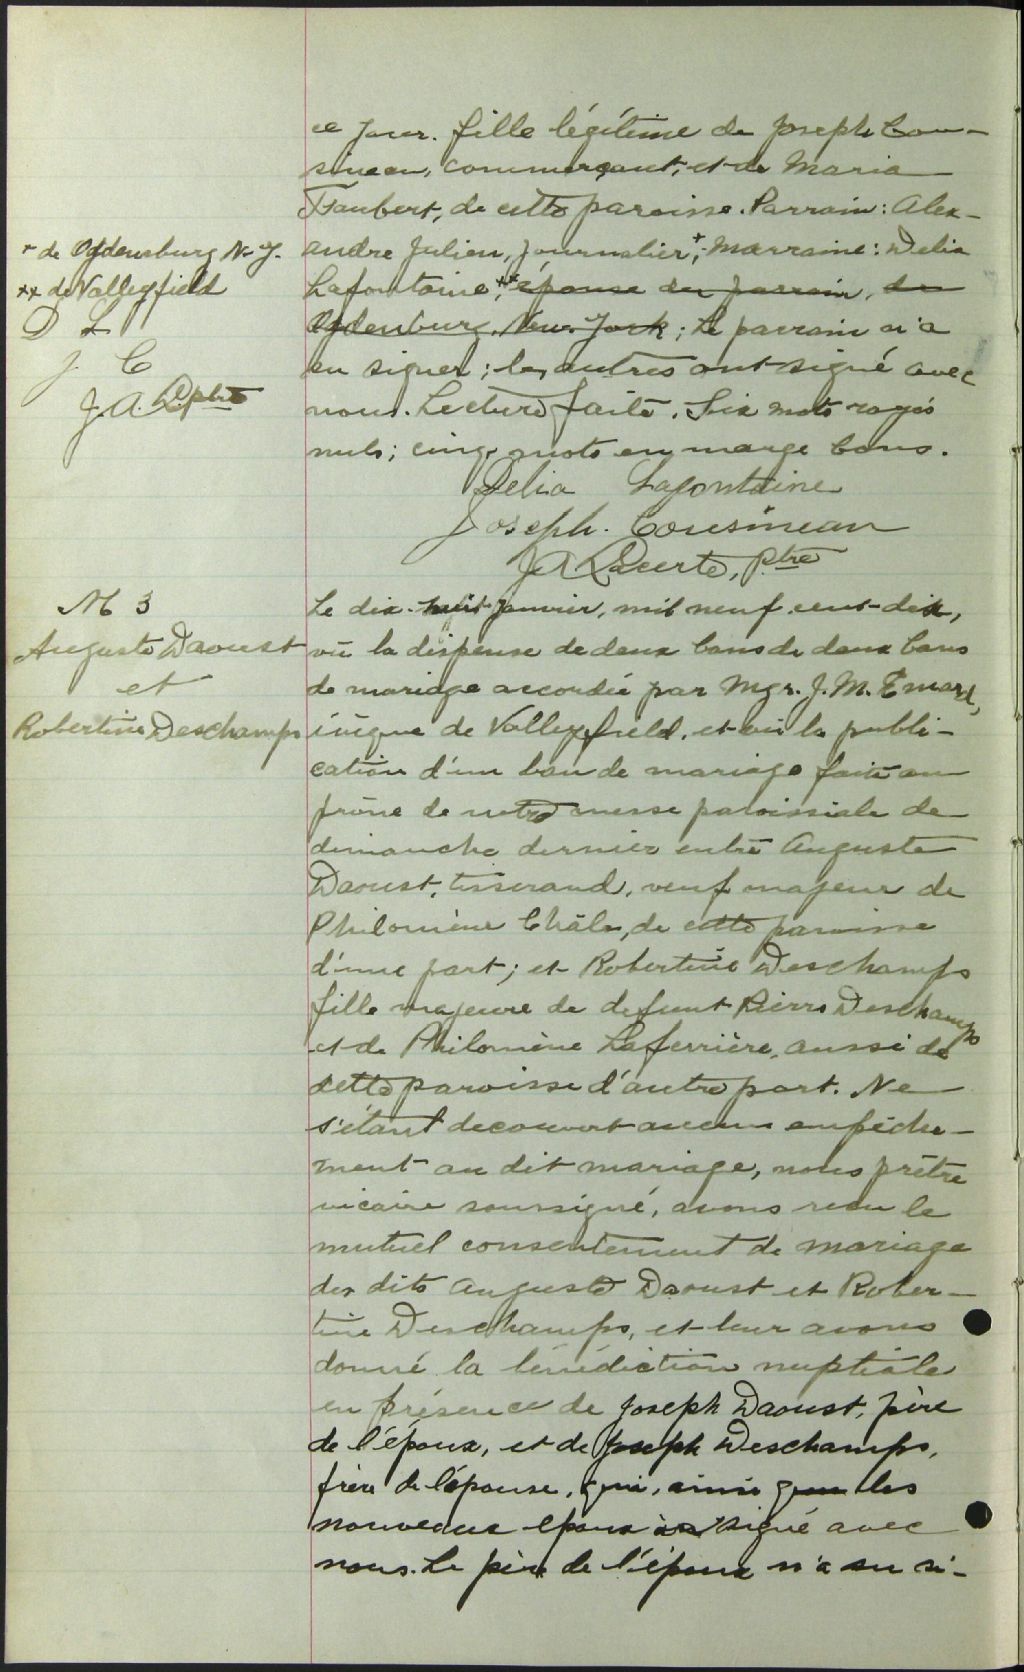 ce jour. fille légitime de Joseph Cou-
sineau, commerçant, et de Maria
Faubert, de cette paroisse. Parrain: Alex-
andre Julien, journalier,+ Marraine: Delia
Lafontaine,++ épouse du parrain, de
Ogdenburg, New York; Le parrain n'a
su signer; les autres ont signé avec
nous. Lecture faite. Six mots rayés
nuls; cinq mots en marge bons.
Delia Lafontaine
Joseph. Cousineau
J A Lacerte, Ptre
+ de Ogdensburg N-Y.
++ de Valleyfield
D L
J C
J. A. L ptre
M 3
Auguste Daoust
et
Robertine Deschamps
Le dix-huit janvier, mil neuf cent-dix,
vû la dispense de deux bans de deux bans
de mariage accordée par Mgr. J. M. Emard,
évêque de Valleyfield, et vû la publi-
cation d'un ban de mariage faite au
prône de notre messe paroissiale de
dimanche dernier entre Auguste
Daoust, tisserand, veuf majeur de
Philomène Châle, de cette paroisse
d'une part; et Robertine Deschamps
fille majeure de defunt Pierre Deschamps
et de Philomène Laferrière, aussi de
cette paroisse d'autre part. Ne
s'étant decouvert aucun empêche-
ment au dit mariage, nous prêtre
vicaire soussigné, avons recu le
mutuel consentement de mariage
des dits Auguste Daoust et Rober-
tine Deschamps, et leur avons
donné la bénédiction nuptiale
en présence de Joseph Daoust, père
de l'époux, et de Joseph Deschamps,
frère de l'épouse, qui, ainsi que les
nouveaux epoux signé avec
nous. Le père de l'époux n'a su si-